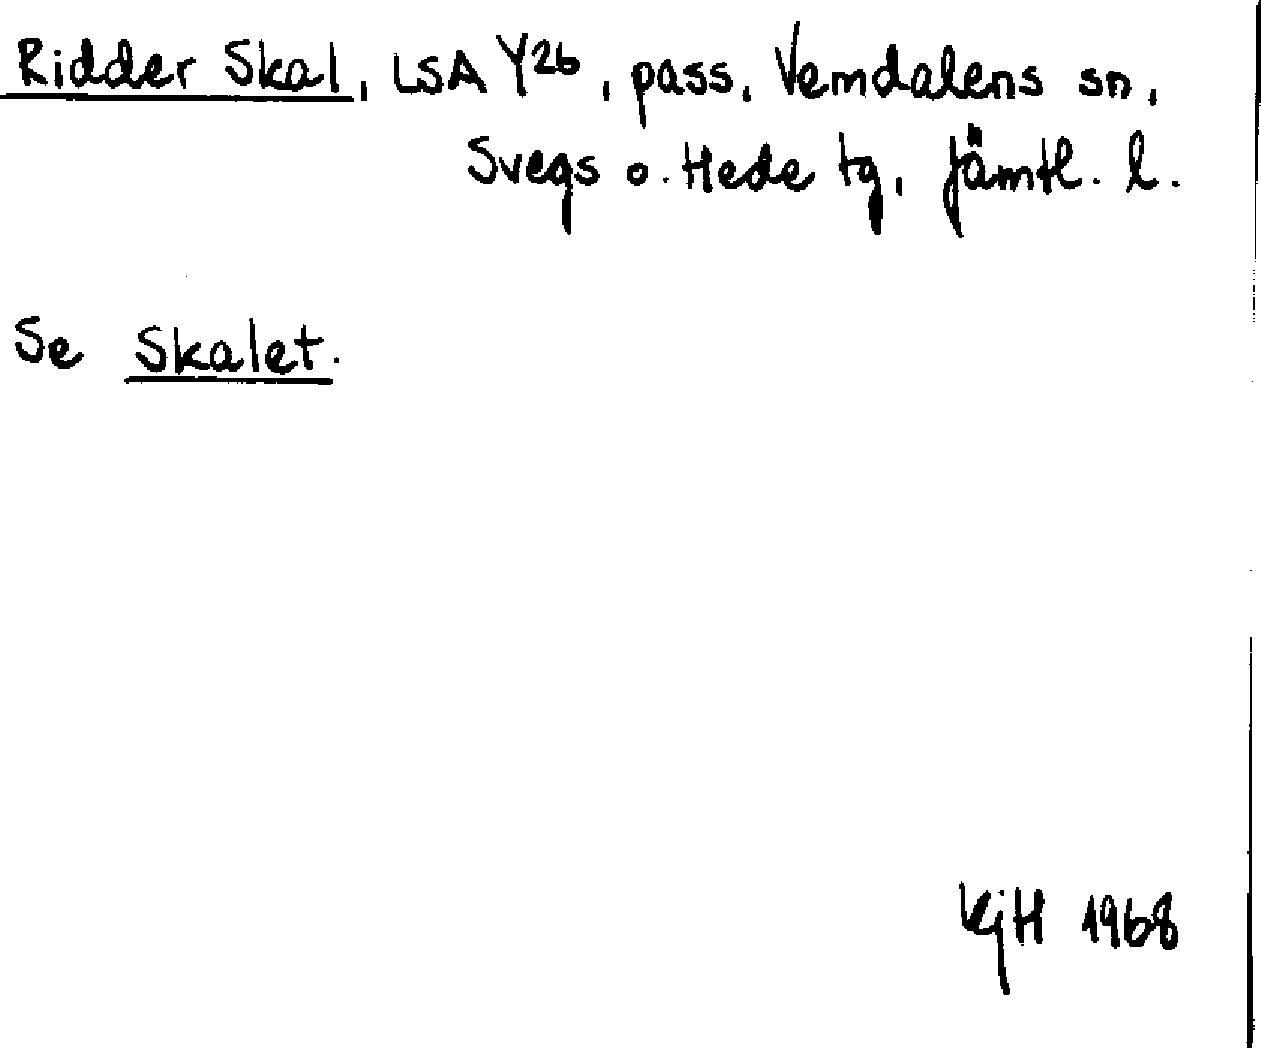 Ridder Skal, LSA Y26, pass, Vemdalens sn,
Svegs o. Hede tg, Jämtl. l.
Se Skalet.
KjH 1968